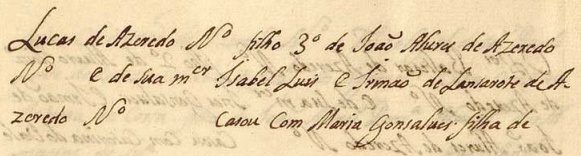 Lucas de Azeredo Nº filho 3º de João Alures de Azeredo
Nº e de sua mer Isabel Luis e Irmaõ de Lansarote de A-
zeredo Nº Casou Com Maria Gonsalues filha de